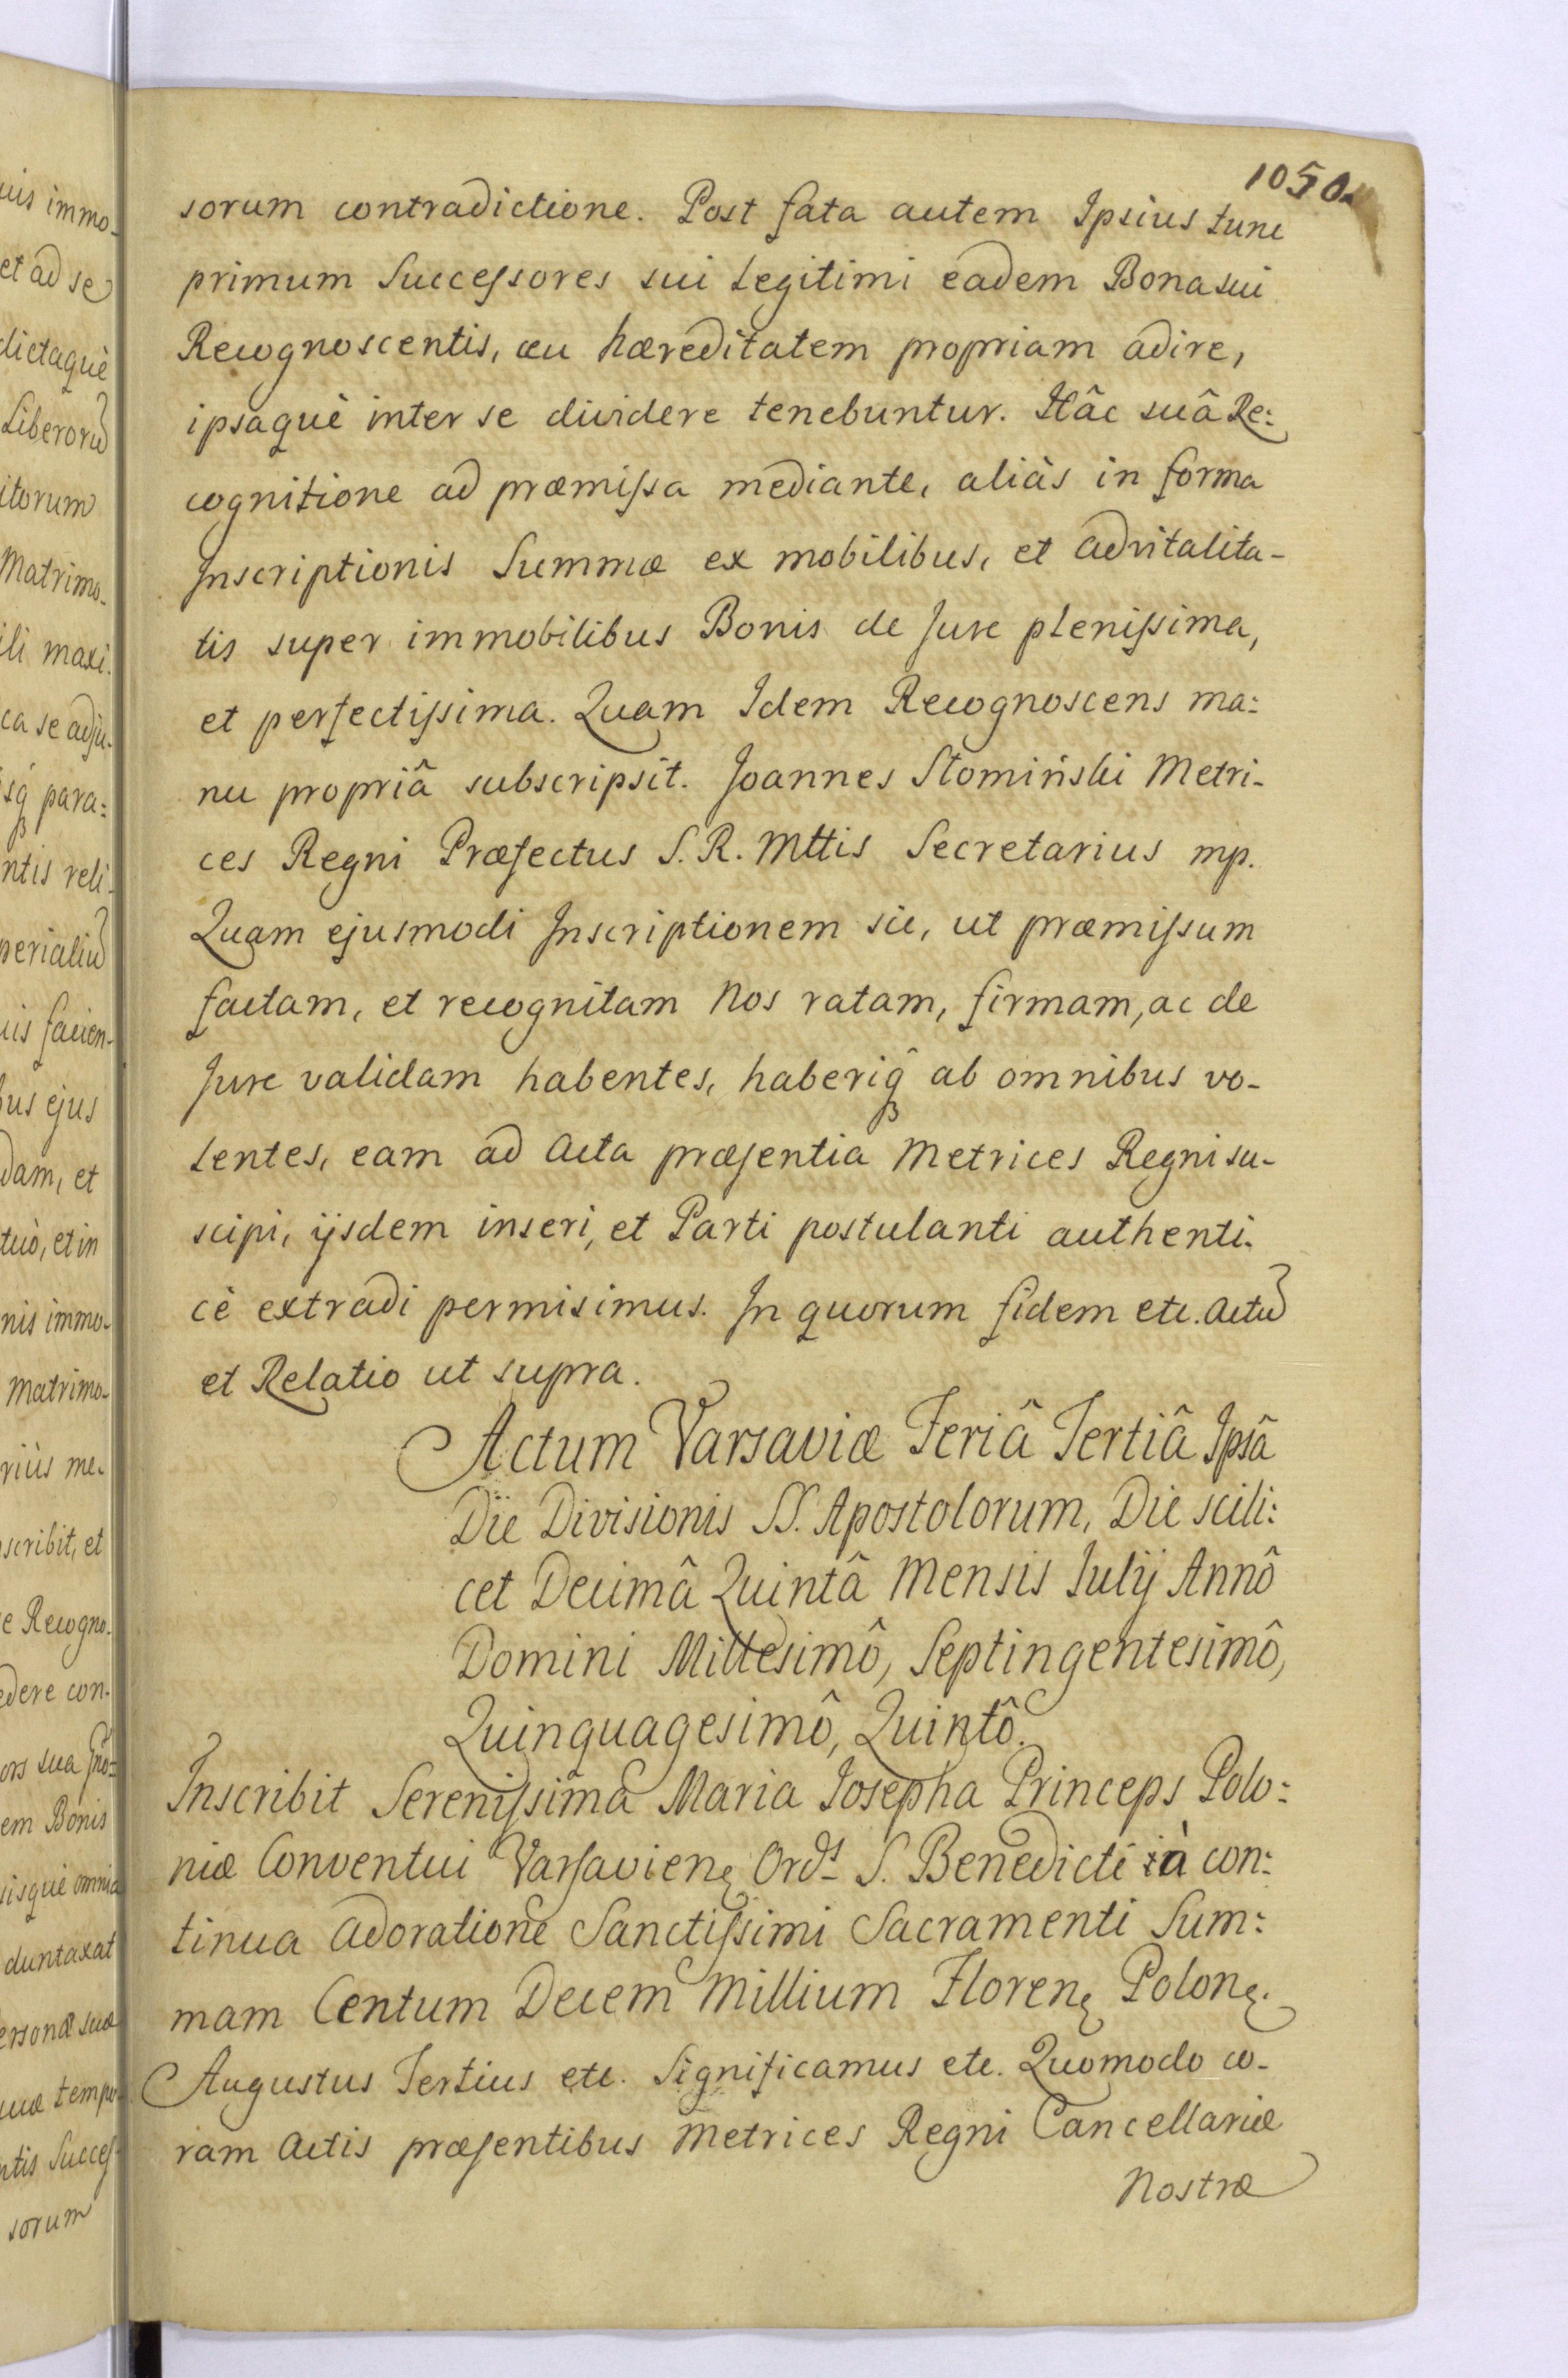 1050
sorum contradictione. Post fata autem Ipsius tunc
primum Successores sui Legitimi eadem Bona sui
Recognoscentis, ceu hæreditatem propriam adire,
ipsaquè inter se dividere tenebuntur. Hâc suâ Re:
cognitione ad præmissa mediante, aliàs in forma
Inscriptionis Summæ ex mobilibus, et advitalita-
tis super immobilibus Bonis de Jure plenissima,
et perfectissima. Quam Idem Recognoscens ma:
nu propriâ subscripsit. Joannes Słomiński Metri-
ces Regni Præfectus S. R. Mttis Secretarius mp.
Quam ejusmodi Inscriptionem sic, ut præmissum
factam, et recognitam Nos ratam, firmam, ac de
Jure validam habentes, haberiq̂ ab omnibus vo-
lentes, eam ad Acta præsentia Metrices Regni su-
scipi, ijsdem inseri, et Parti postulanti authenti-
cè extradi permisimus. In quorum fidem etc. Actũ
et Relatio ut supra.
Actum Varsaviæ Feriâ Tertiâ Ipsâ
Die Divisionis SS. Apostolorum, Die scili:
cet Decimâ Quintâ Mensis Julij Annô
Domini Millesimô, Septingentesimô,
Quinquagesimô, Quintô.
Inscribit Serenissima Maria Josepha Princeps Polo:
niæ Conventui Varsavienę Ordˢ S. Benedicti à con:
tinua Adoratione Sanctissimi Sacramenti Sum:
mam Centum Decem Millium Florenę Polonę.
Augustus Tertius etc. Significamus etc. Quomodo co-
ram Actis præsentibus Metrices Regni Cancellariæ
Nostræ
uis immo-
et ad se
dictaquè
Liberorũ
itorum
Matrimo-
ili maxi-
ca se adju-
sq̂ para:
ntis reli-
perialiũ
uis facien-
bus ejus
dam, et
tuò, et in
nis immo-
Matrimo-
riùs me-
scribit, et
e Recogno-
edere con-
ors sua
em Bonis
sisquè omnia
duntaxat
ersonæ suæ
uæ tempo-
ntis Succes-
sorum